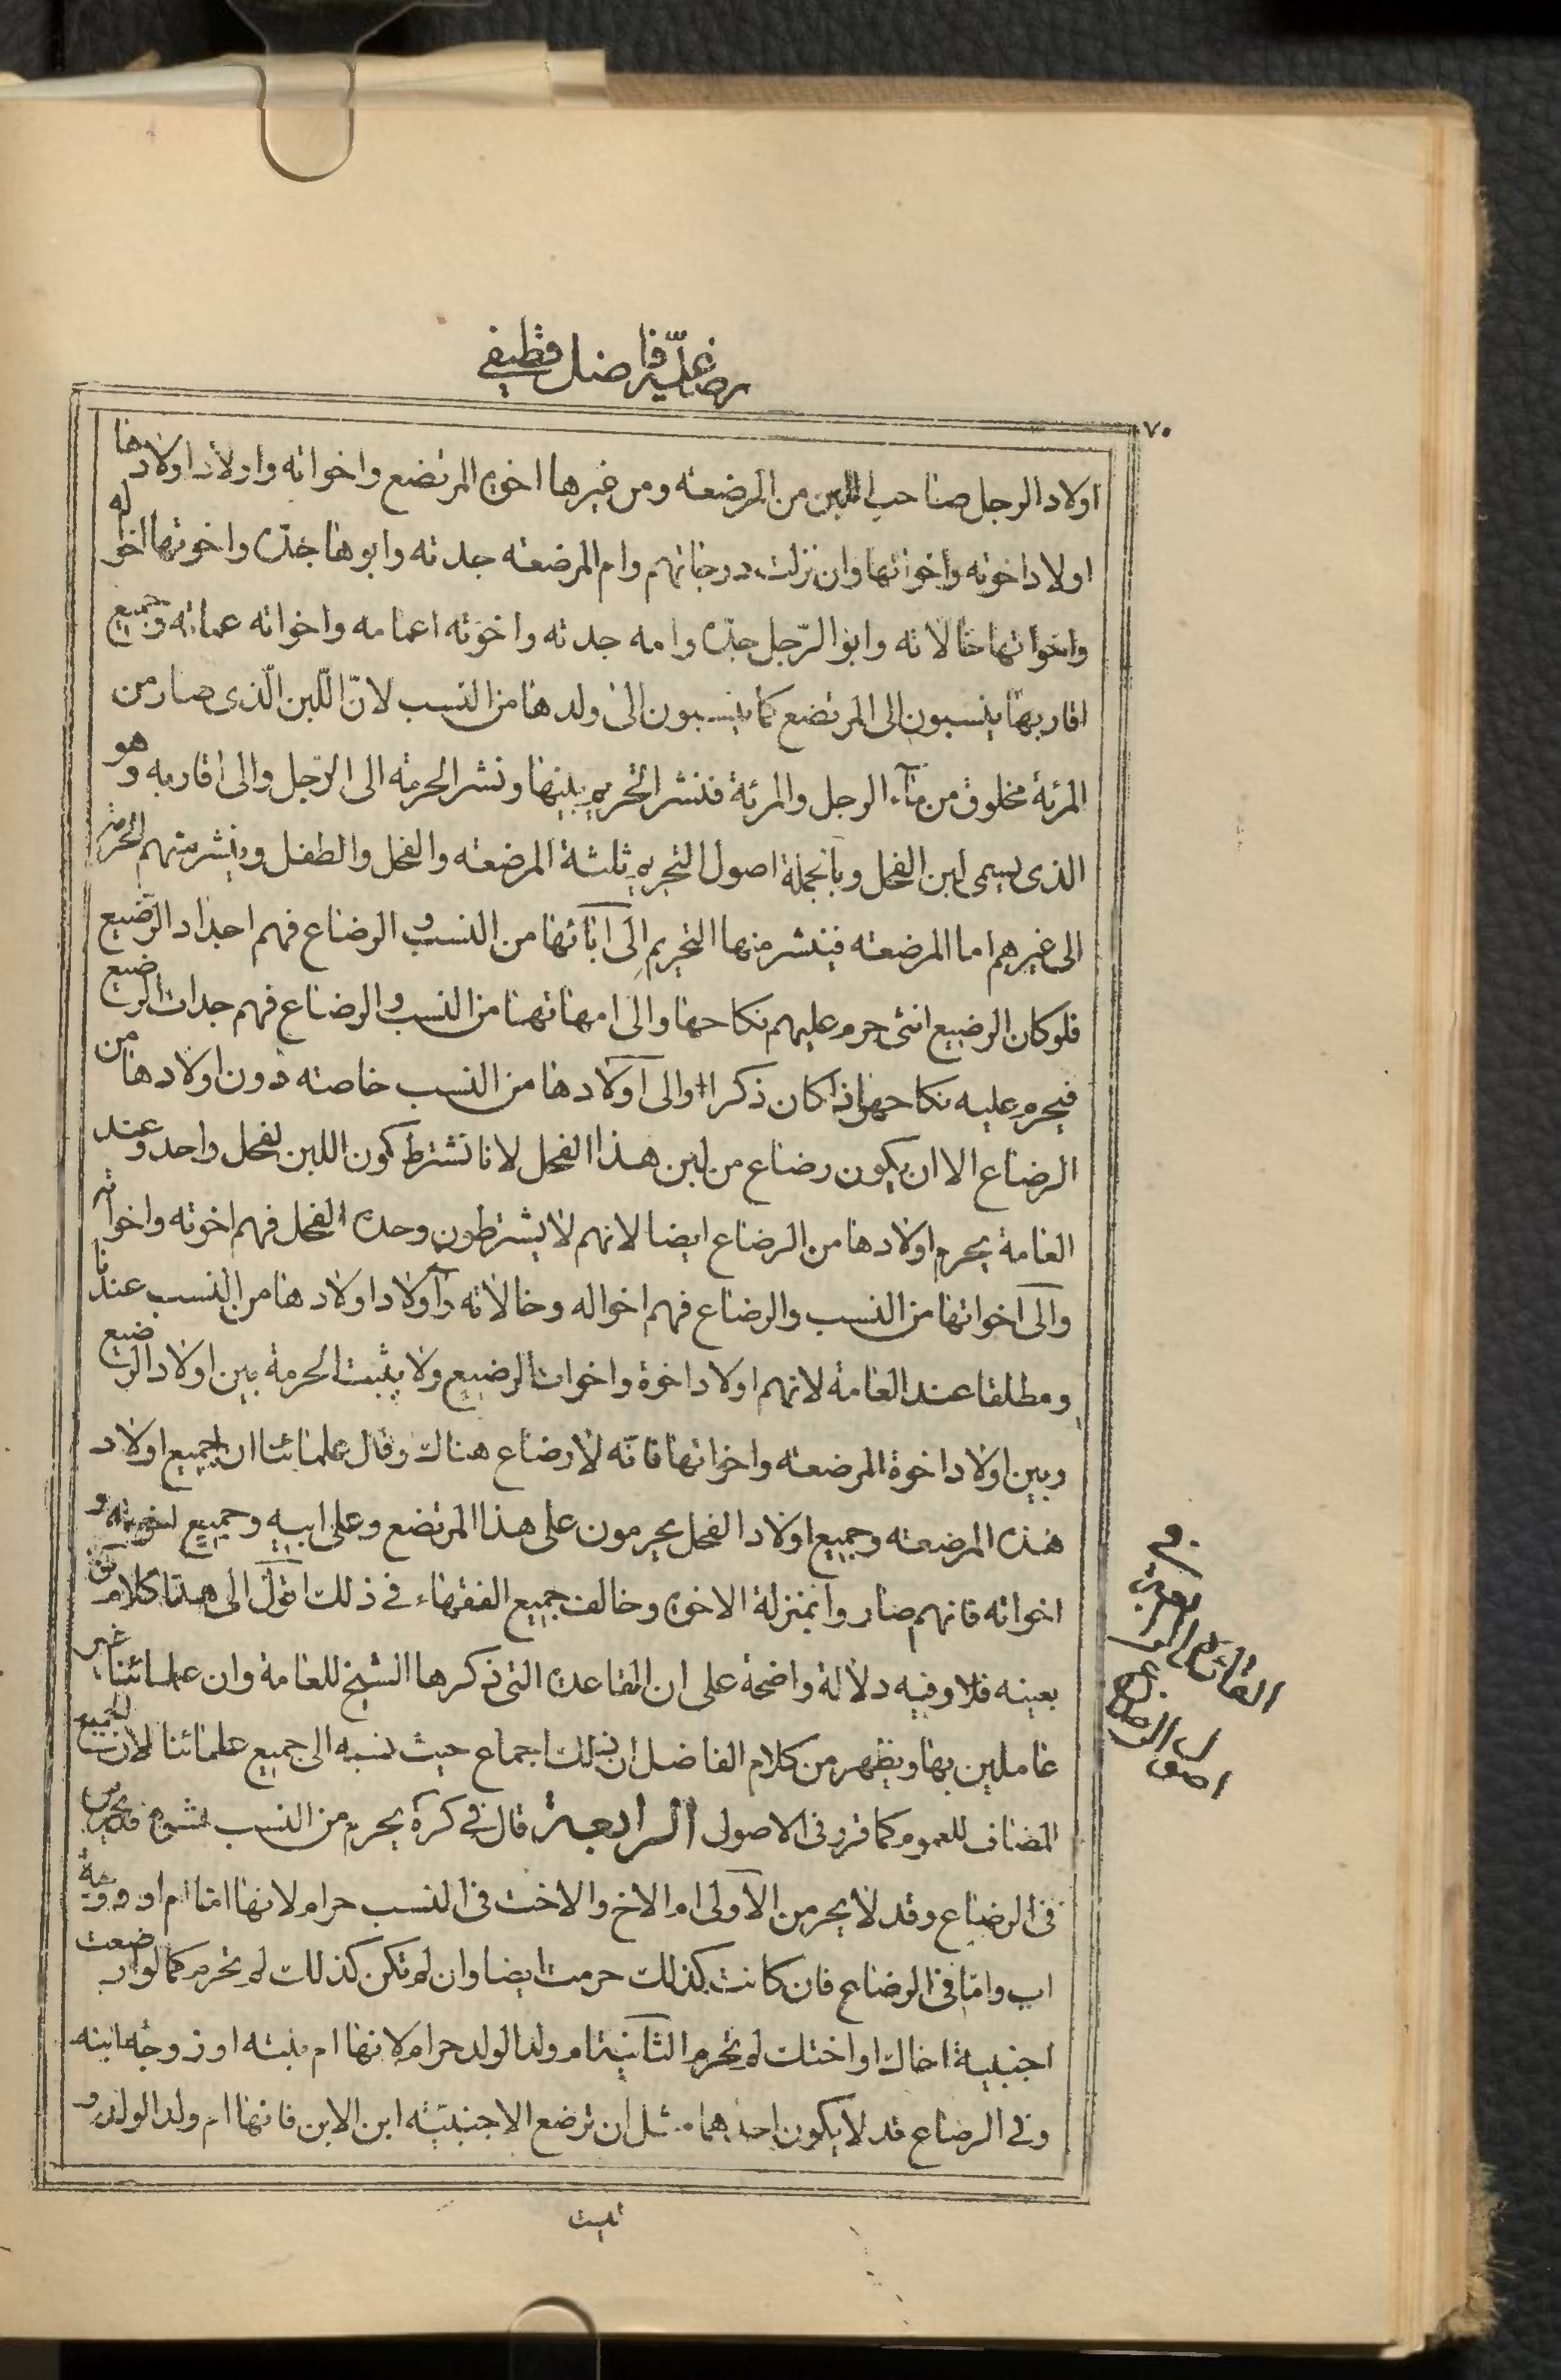 رضاعية فاضل قطيفى
٧٠
اولاد الرجل صاحب اللبن من المرضعة ومن غيرها اخوة المرتضع واخواته واولاد اولادها
اولاد اخوته واخواتها وان نزلت درجاتهم وام المرضعة جدته وابوها جده واخوتها اخواله
واخواتها خالاته وابو الرّجل جدّه وامه جدته واخوته اعمامه واخواته عماته وجميع
اقاربها ينسبون الى المرتضع كما ينسبون الى ولدها من النسب لانّ اللّبن الّذى صار من
المرئة مخلوق من مآء الرجل والمرئة فنشر التحريم بينها ونشر الحرمة الى الرّجل والى اقاربه وهو
الذى يسمى لبن الفحل وبالجملة اصول التحريم ثلثة المرضعة والفحل والطفل وينشر منهم الحرمة
الى غيرهم اما المرضعة فينشر منها التحريم الى آبائها من النسب و الرضاع فهم اجداد الرّضيع
فلو كان الرضيع انثى حرم عليهم نكاحها والى امهاتها من النسب و الرضاع فهم جدات الرضيع
فيحرم عليه نكاحها اذا كان ذكرا والى اولادها من النسب خاصة دون اولادها من
الرضاع الا ان يكون رضاع من لبن هذا الفحل لانا نشترط كون اللبن لفحل واحد وعند
العامة يحرم اولادها من الرضاع ايضا لانهم لا يشترطون وحدة الفحل فهم اخوته واخواته
والى اخواتها من النسب والرضاع فهم اخواله وخالاته واولاد اولادها من النسب عندنا
ومطلقا عند العامة لانهم اولاد اخوة واخوات الرضيع ولا يثبت الحرمة بين اولاد الرضيع
وبين اولاد اخوة المرضعة واخواتها فانّه لا رضاع هناك وقال علمائنا ان جميع اولاد
هذه المرضعة وجميع اولاد الفحل يحرمون على هذا المرتضع وعلى ابيه وجميع اخوته و
اخواته فانهم صاروا بمنزلة الاخوة وخالف جميع الفقهاء فى ذلك اقول الى هنا كلام
بعينه فلا وفيه دلالة واضحة على ان القاعدة التى ذكرها الشيخ للعامة وان علمائنا غير
عاملين بها ويظهر من كلام الفاضل ان ذلك اجماع حيث نسبه الى جميع علمائنا لان الجميع
المضاف للعموم كما قرر فى الاصول الرابعة قال فى كرة يحرم من النسب
فى الرضاع وقد لا يحرمن الاولى ام الاخ والاخت فى النسب حرام لانها اما ام او زوجة
اب واما فى الرضاع فان كانت كذلك حرمت ايضا وان لم تكن كذلك لم تحرم كما لو ارضعت
اجنبية اخاك او اختك لم تحرم الثانية ام ولد الولد حرام لانها ام بنته او زوجة ابنه
وفى الرضاع قد لا يكون احدهما مثل ان ترضع الاجنبيّة ابن الابن فانها ام ولد الولد و
ليست
فى
اصول الرضاع